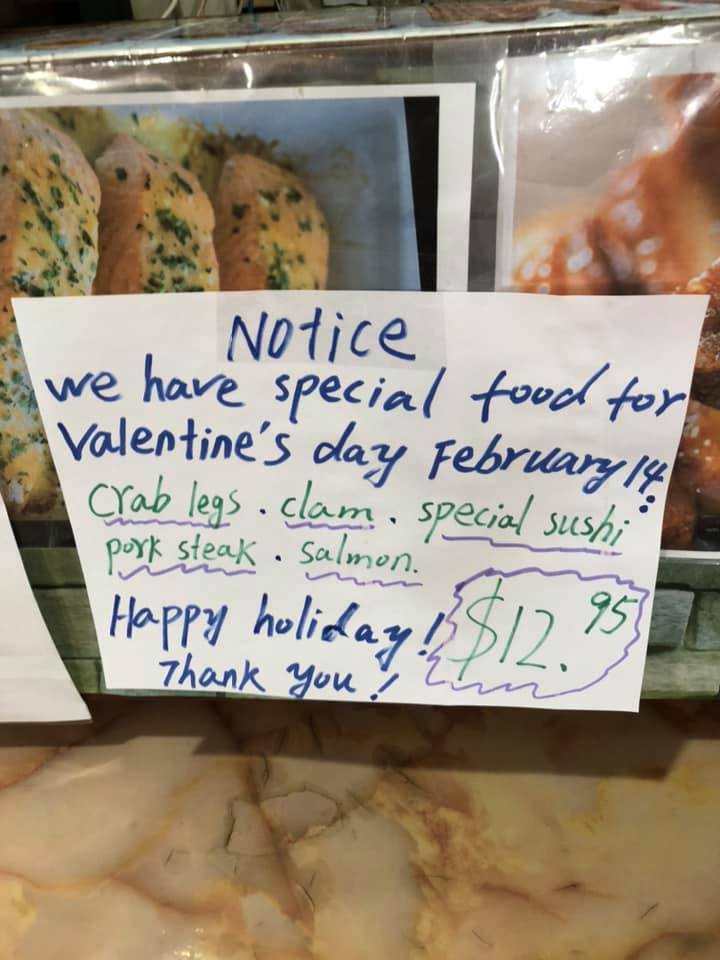 Notice
we have special food for
Valentine's day February 14:
Crab legs . clam . special sushi
pork steak . salmon.
Happy holiday! $12.95
Thank you!